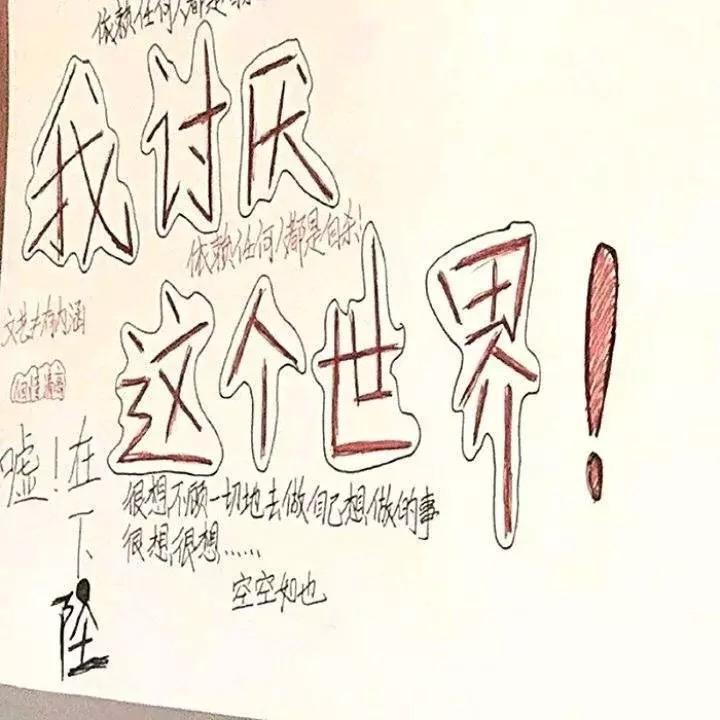 依赖任何人都是
我讨厌
依赖任何人都是自杀!
这个世界!
文艺才有内涵
嘘!在下坠
很想不顾一切地去做自己想做的事
很想很想……
空空如也